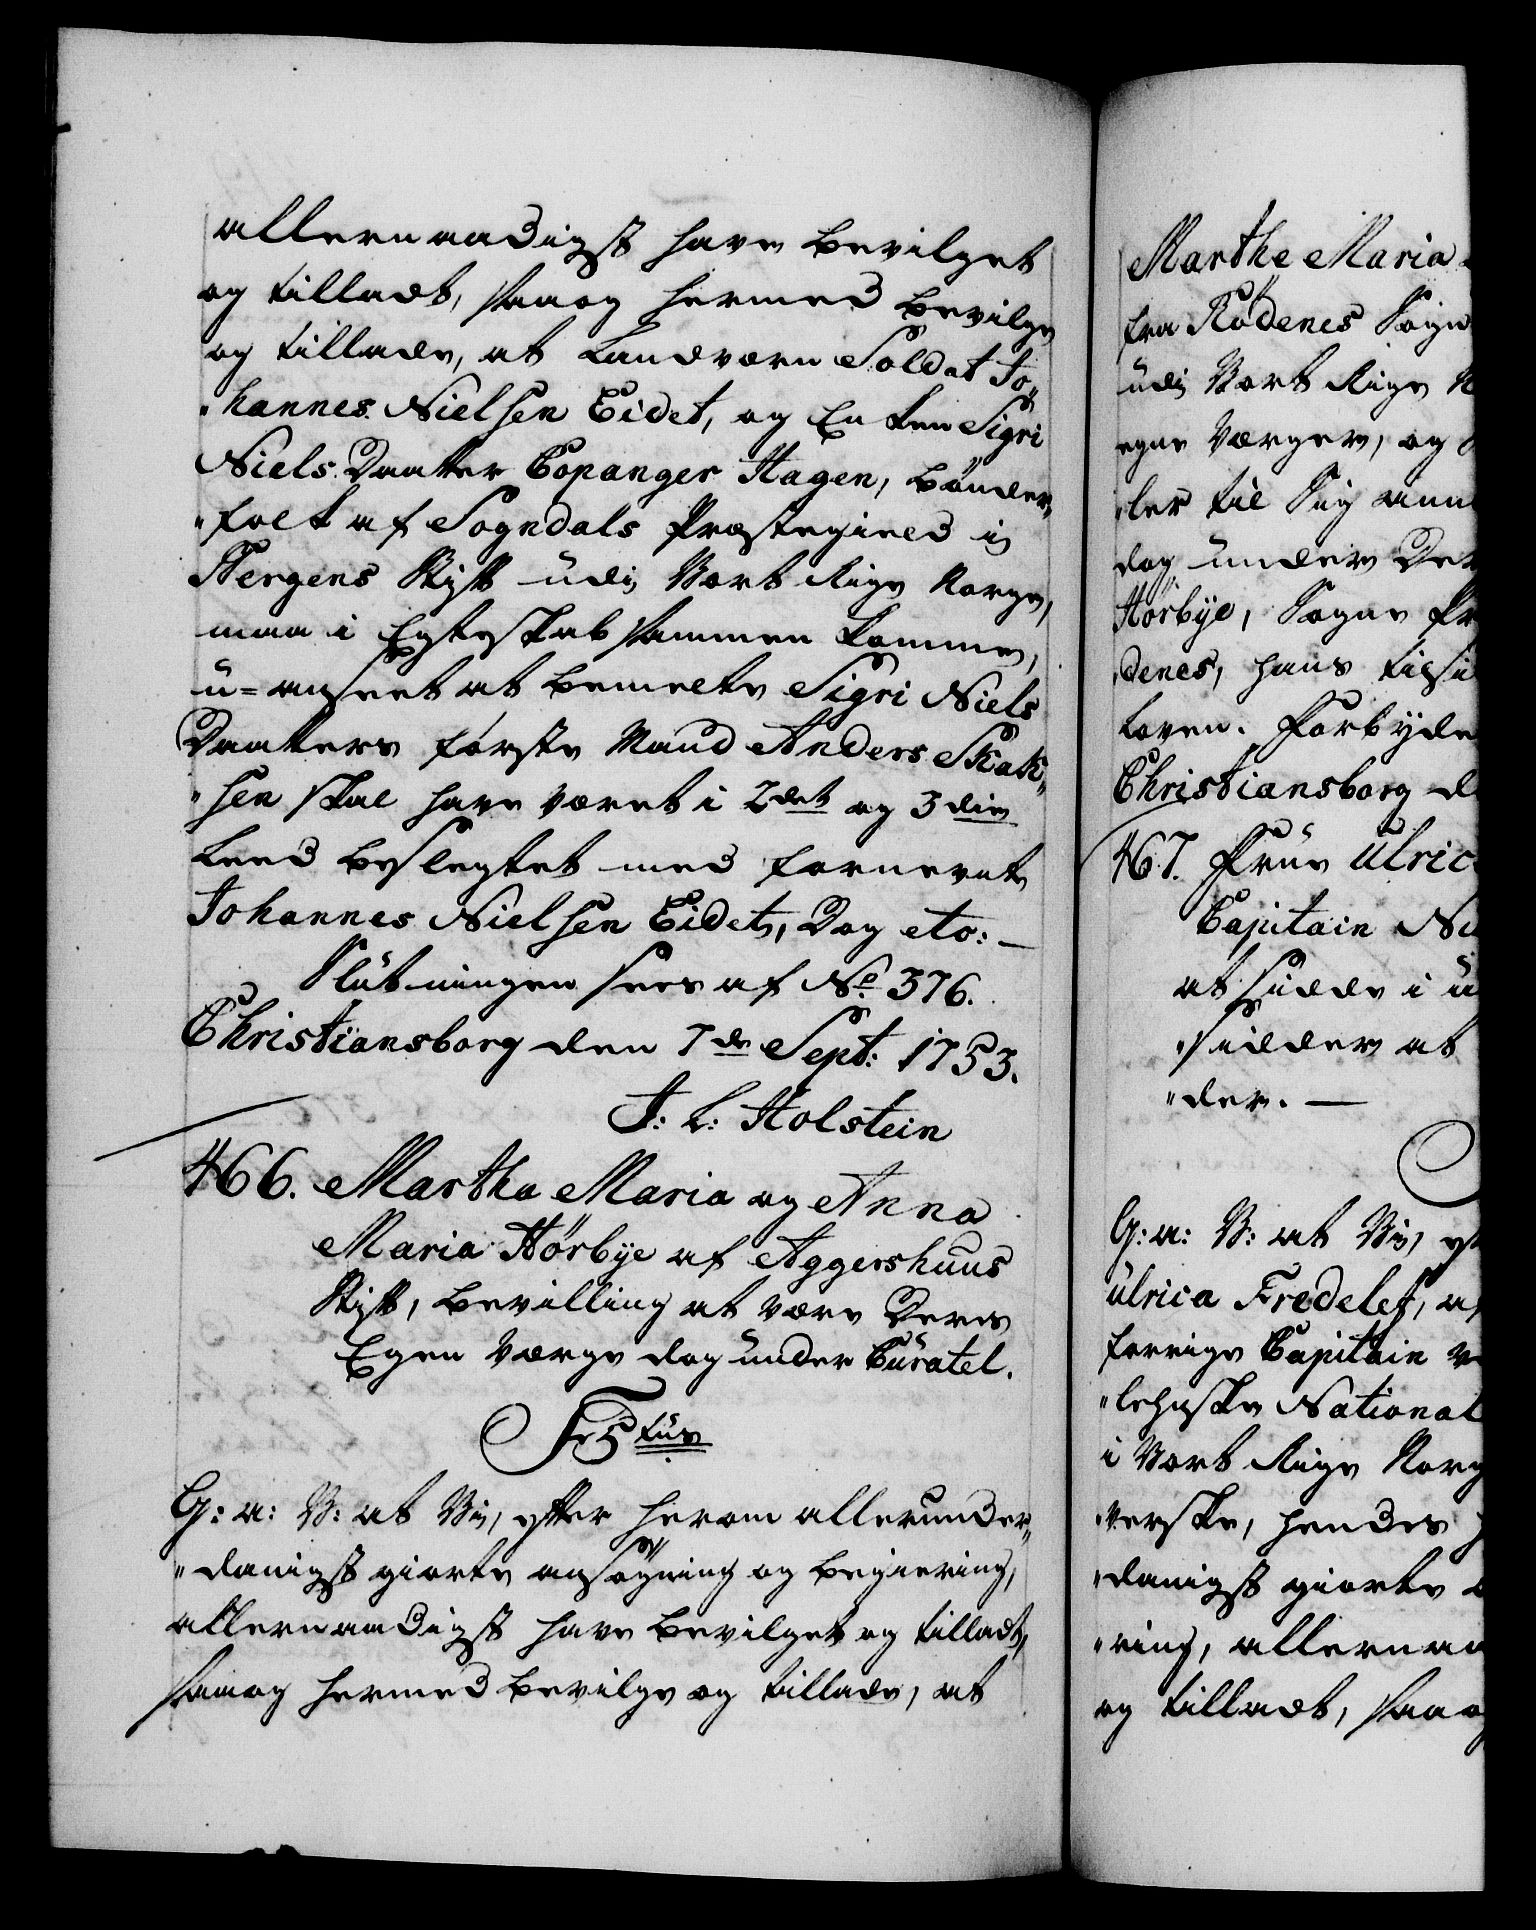 allernaadigst have bevilget
og tilladt, saa og hermed bevilge
og tillade, at Landværn Soldat Jo„
„hannes Nielsen Eidet, og Enken Sigri
Niels Daatter Copanger Hagen, bönder„
„folk af Sogndals Præstegield i
Bergens Stift udi Vort Rige Norge,
maa i Egteskab sammen komme,
u-anseet at bemeelte Sigri Niels
Daatters förste Mand Anders Skak„
„sen skal have været i 2det og 3die
Leed beslegtet med fornevnte
Johannes Nielsen Eidet, Dog etc: —
Slutningen sees af No. 376.
Christiansborg den 7de Sept: 1753.
J: L: Holstein
466. Martha Maria og Anna
Maria Hörbye af Aggershuus
Stift, bevilling at være Deres
Egen Værge dog under Curatel.
Fr: 5tus
G: a: V: at Vi, efter herom allerunder„
„danigst giorte ansögning og begiering,
allernaadigst have bevilget og tilladt,
saa og hermed bevilge og tillade, at
Marthe Maria
fra Rödenes Sogn
udi Vort Rige N
egne Værger, og
„ler til Sig ann
dog under Der
Hörbye, Sogne Pr
denes, hans tilsi
Loven. Forbyde
Christiansborg d
467. Frue Ulric
Capitain N
at sidde i u
„sidder at
„der. —
G: a: V: at Vi, ef
Ulrica Fredelef, af
forrige Capitain v
„lehnske National
i Vort Rige Norg
„verske, hendes h
„danigst giorte
„ring, allernaa
og tilladt, saa o